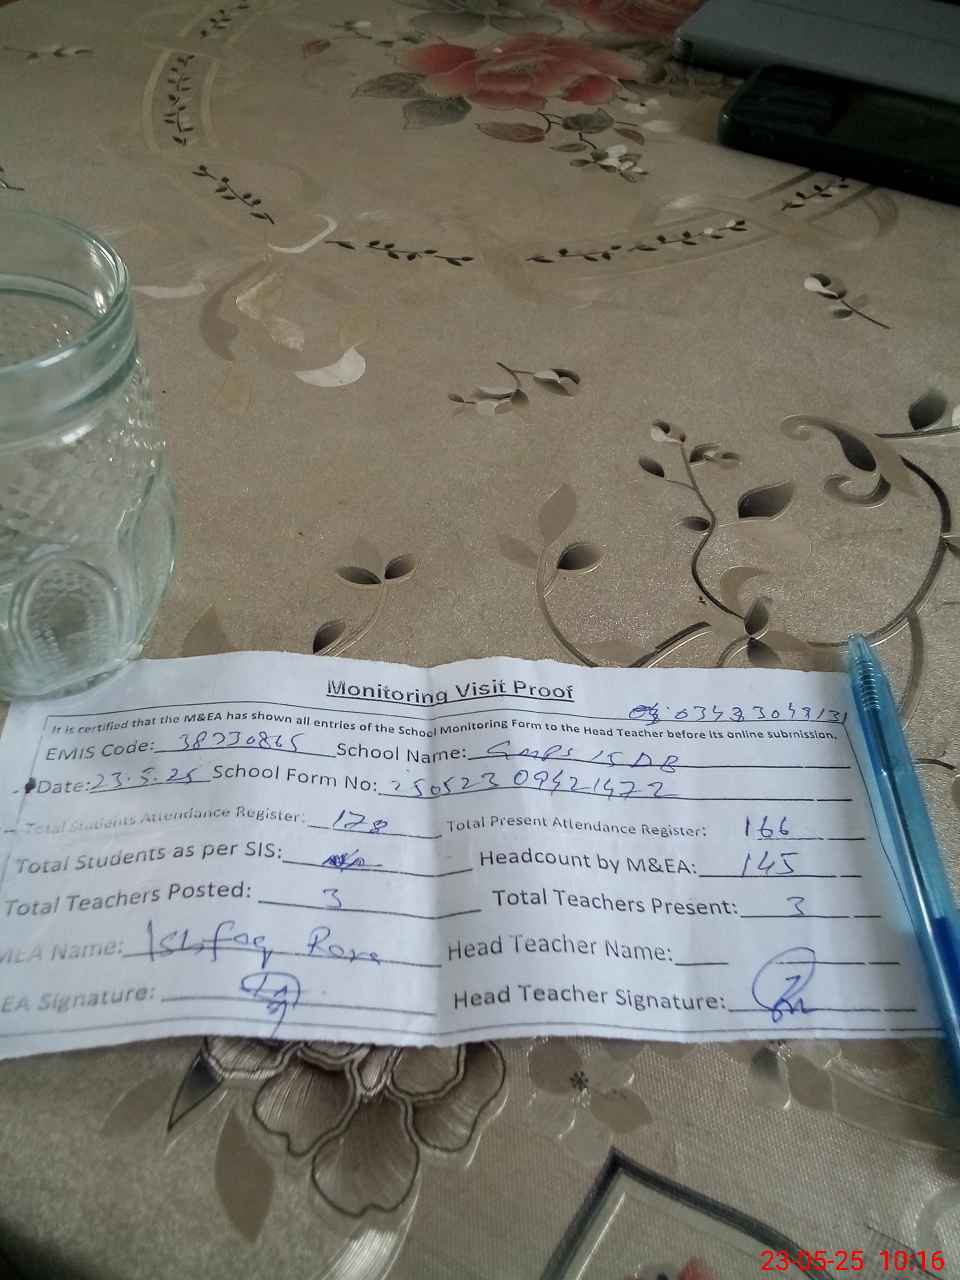 Monitoring Visit Proof
It is certified that the M&EA has shown all entries of the School Monitoring Form to the Head Teacher before its online submission.
EMIS Code: School Name: GMPS 15 DB
Date: 23.5.25 School Form No: 25052309421472
Total Students Attendance Register: 178 Total Present Attendance Register: 166
Total Students as per SIS: Headcount by M&EA: 145
Total Teachers Posted: 3 Total Teachers Present: 3
MEA Name: Ishfaq Head Teacher Name:
EA Signature: Head Teacher Signature:
23-05-25 10:16